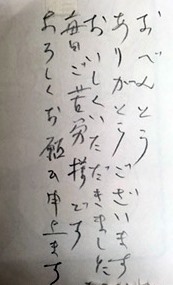 おべんとう
ありがとうございます
おいしくいただきました
毎日ご苦労様です
よろしくお願い申上ます